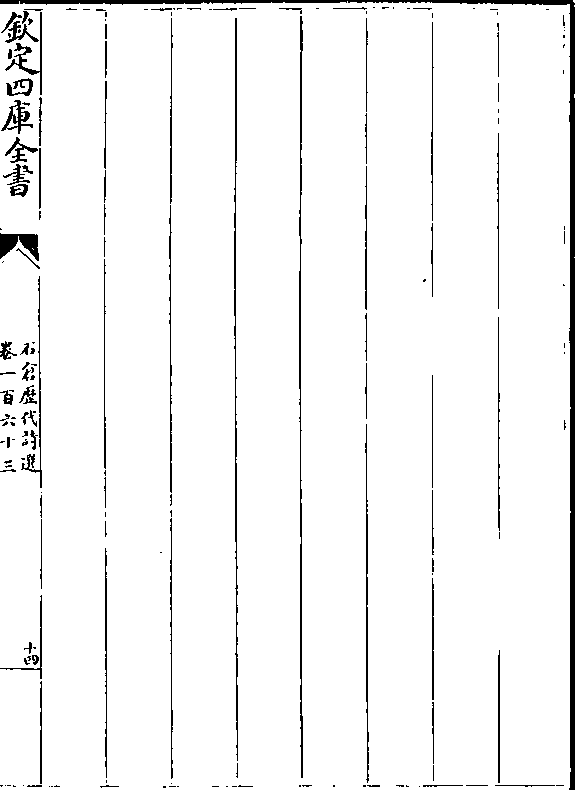 欽定四庫全書
石倉歷代詩選
卷一百六十三
十四